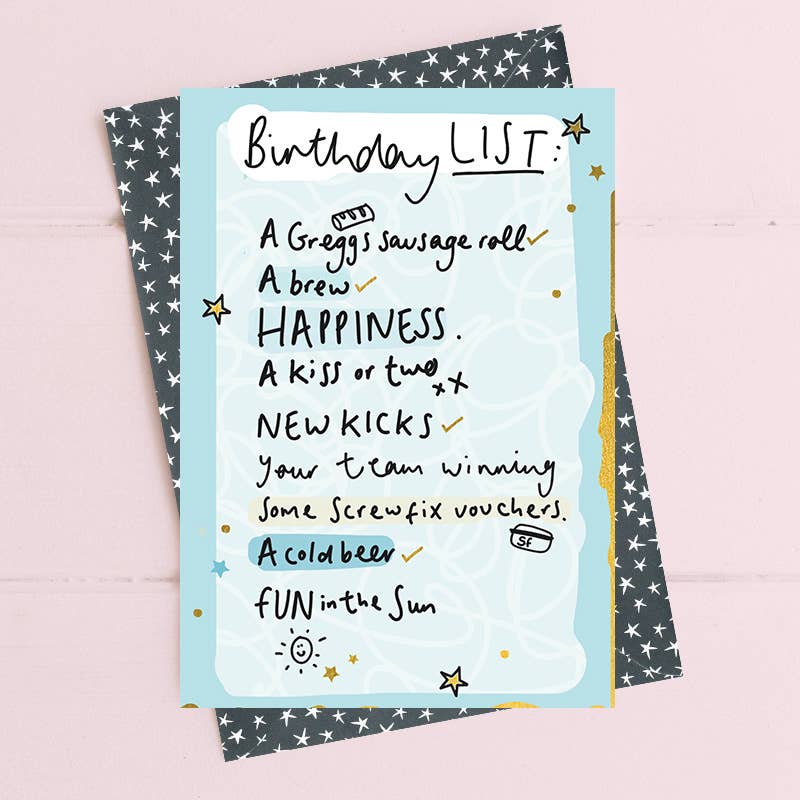 Birthday LIST:
A Greggs sausage roll
A brew
HAPPINESS.
A kiss or two xx
NEW KICKS
Your team winning
Some Screwfix vouchers.
Sf
A cold beer
fUN in the Sun